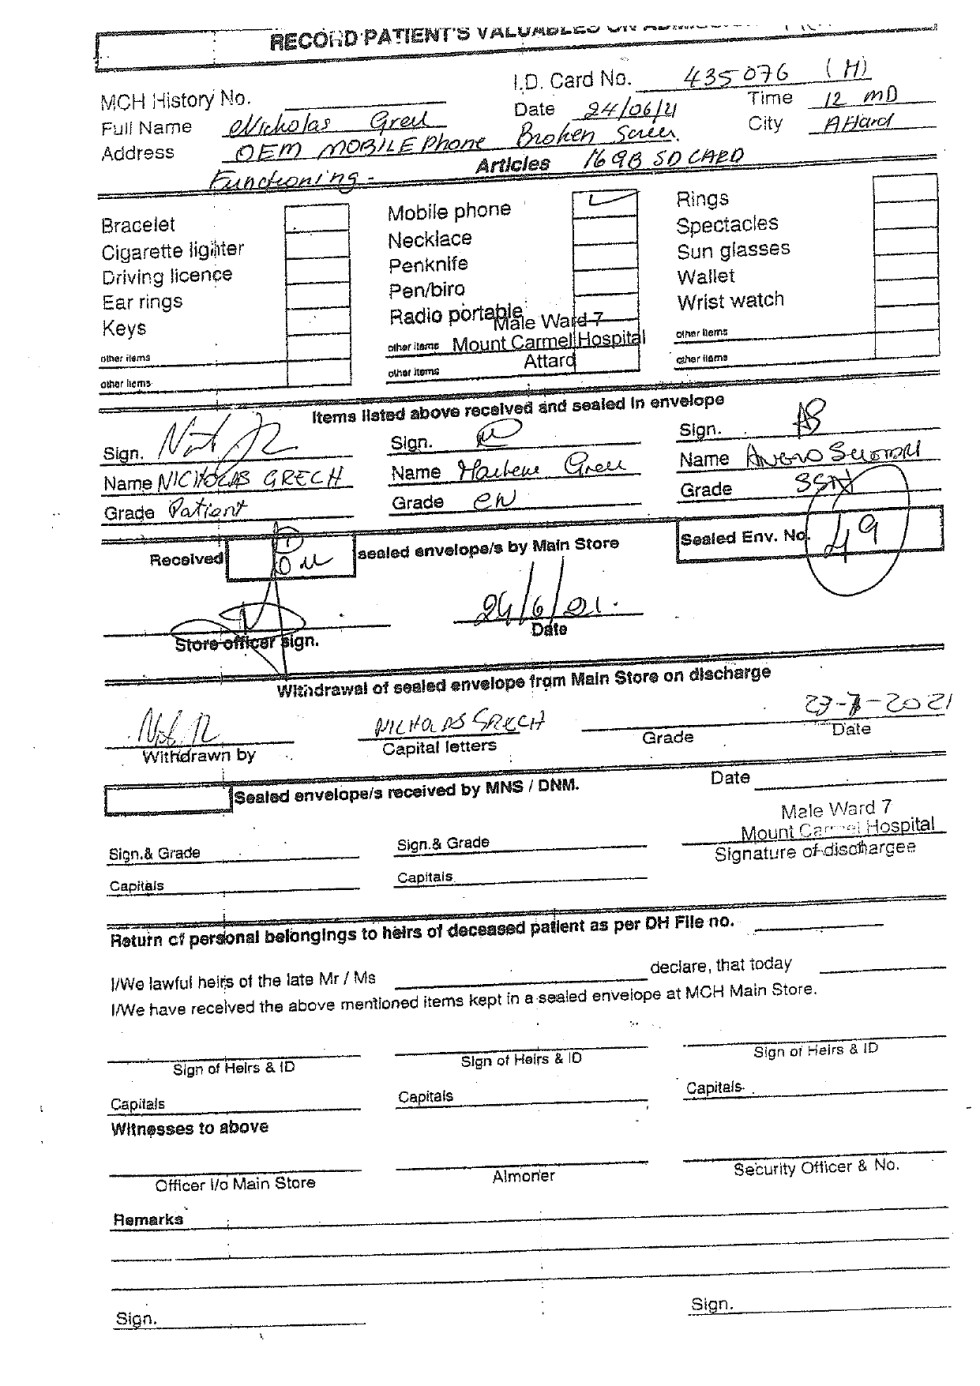 RECORD PATIENT'S VALUABLES ON
I.D. Card No. 435076 (H)
MCH History No.
Date 24/06/21 Time 12 MD
Full Name Nicholas Grech City Attard
Address OEM MOBILE Phone Broken Screen
Articles 16GB SD CARD
Functioning -
Bracelet
Cigarette lighter
Driving licence
Ear rings
Keys
other items
other items
Mobile phone
Necklace
Penknife
Pen/biro
Radio portable
other items
other items
Male Ward 7
Mount Carmel Hospital
Attard
Rings
Spectacles
Sun glasses
Wallet
Wrist watch
other items
other items
Items listed above received and sealed in envelope
Sign. Sign. Sign.
Name NICHOLAS GRECH Name Marlene Grech Name
Grade Patient Grade EN Grade SSN
Received sealed envelope/s by Main Store Sealed Env. No. 49
24/6/21.
Store officer sign. Date
Withdrawal of sealed envelope from Main Store on discharge
NICHOLAS GRECH 23-7-2021
Withdrawn by Capital letters Grade Date
Sealed envelope/s received by MNS / DNM. Date
Male Ward 7
Mount Carmel Hospital
Sign.& Grade Sign.& Grade Signature of dischargee
Capitals Capitals
Return of personal belongings to heirs of deceased patient as per DH File no.
I/We lawful heirs of the late Mr / Ms declare, that today
I/We have received the above mentioned items kept in a sealed envelope at MCH Main Store.
Sign of Heirs & ID Sign of Heirs & ID Sign of Heirs & ID
Capitals Capitals Capitals
Witnesses to above
Officer I/c Main Store Almoner Security Officer & No.
Remarks
Sign. Sign.